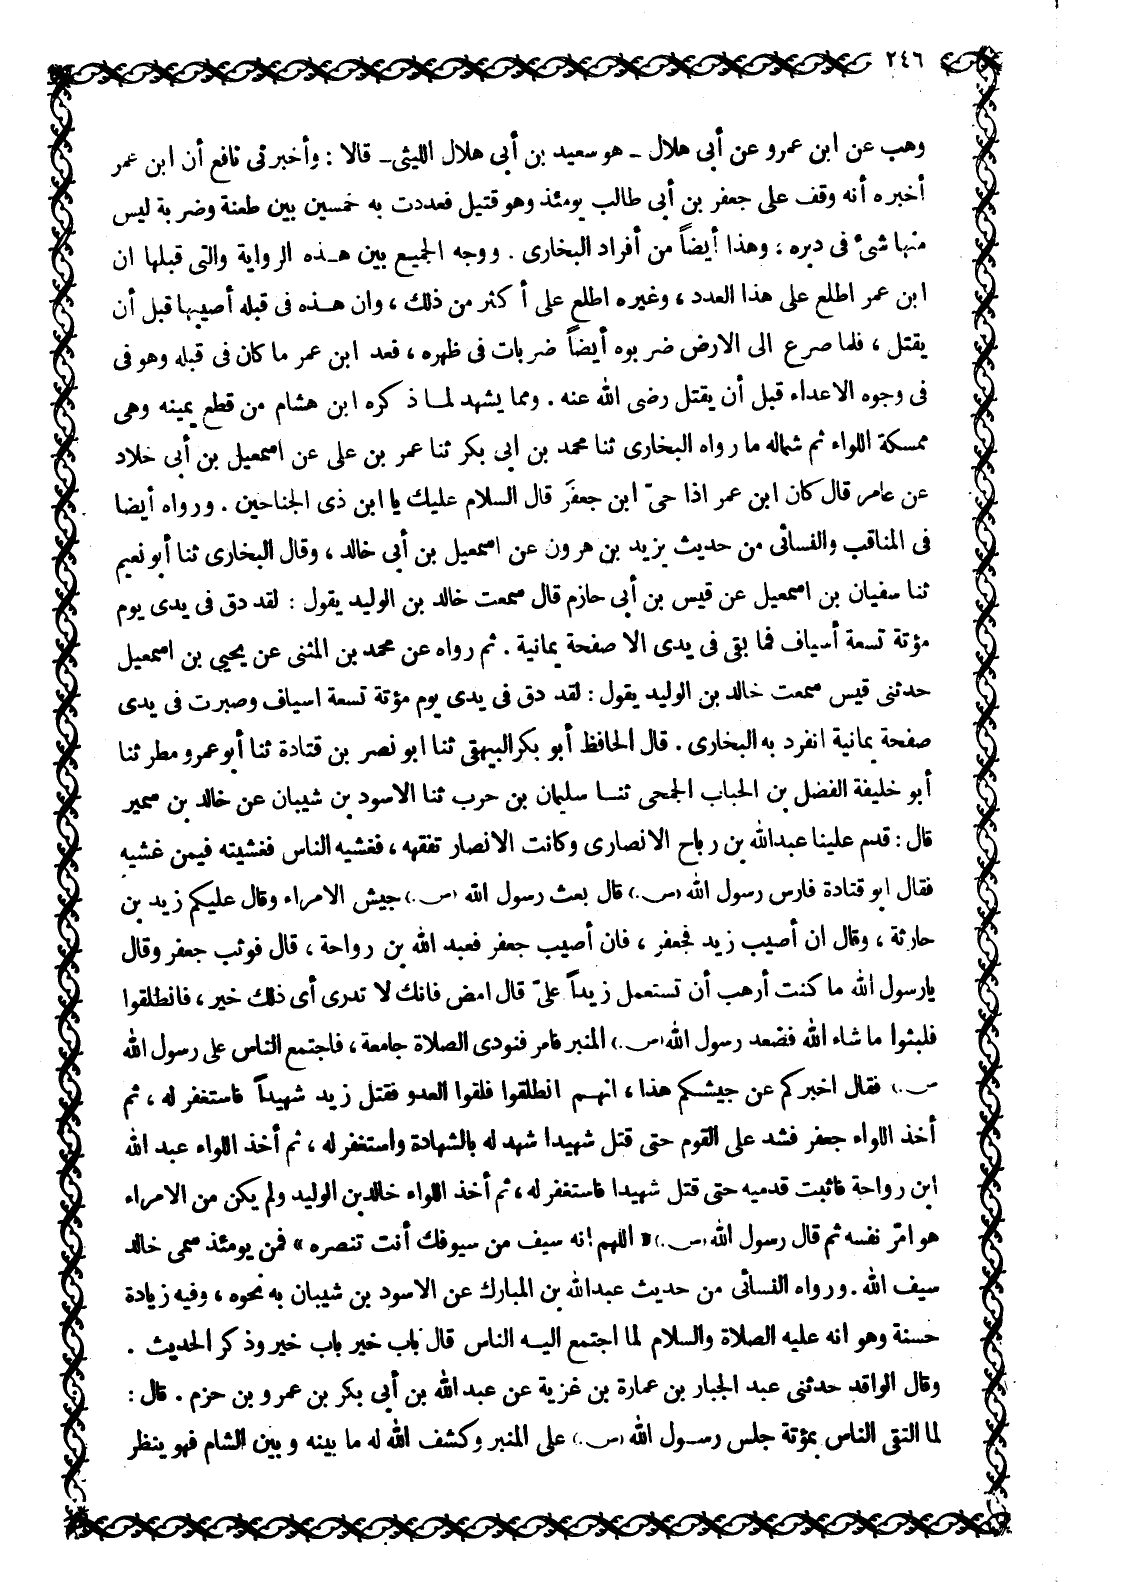 ٢٤٦
وهب عن ابن عمرو عن أبى هلال ـ هو سعيد بن أبى هلال الليثى ـ قالا : وأخبرنى نافع أن ابن عمر
أخبره أنه وقف على جعفر بن أبى طالب يومئذ وهو قتيل فعددت به خمسين بين طعنة وضربة ليس
منها شىء فى دبره ؛ وهذا أيضاً من أفراد البخارى . ووجه الجميع بين هـذه الرواية والتى قبلها ان
ابن عمر اطلع على هذا العدد ، وغيره اطلع على أكثر من ذلك ، وان هـذه فى قبله أصيبها قبل أن
يقتل ، فلما صرع الى الارض ضربوه أيضاً ضربات فى ظهره ، فعد ابن عمر ما كان فى قبله وهو فى
فى وجوه الاعداء قبل أن يقتل رضى الله عنه . ومما يشهد لمـا ذكره ابن هشام من قطع يمينه وهى
ممسكة اللواء ثم شماله ما رواه البخارى ثنا محمد بن ابى بكر ثنا عمر بن على عن اسمعيل بن أبى خلاد
عن عامر قال كان ابن عمر اذا حىّ ابن جعفَر قال السلام عليك يا ابن ذى الجناحين . ورواه أيضا
فى المناقب والنسائى من حديث يزيد بن هرون عن اسمعيل بن أبى خالد ، وقال البخارى ثنا أبو نعيم
ثنا سفيان بن اسمعيل عن قيس بن أبى حازم قال سمعت خالد بن الوليد يقول : لقد دق فى يدى يوم
مؤتة تسعة أسياف فما بقى فى يدى الا صفحة يمانية . ثم رواه عن محمد بن المثنى عن يحيى بن اسمعيل
حدثنى قيس سمعت خالد بن الوليد يقول : لقد دق فى يدى يوم مؤتة تسعة اسياف وصبرت فى يدى
صفحة يمانية انفرد به البخارى . قال الحافظ أبو بكر البيهقى ثنا ابو نصر بن قتادة ثنا أبو عمرو مطر ثنا
أبو خليفة الفضل بن الحباب الجمحى ثنـا سليمان بن حرب ثنا الاسود بن شيبان عن خالد بن سمير
قال : قدم علينا عبدالله بن رباح الانصارى وكانت الانصار تفقهه ، فغشيه الناس فغشيته فيمن غشيه
فقال ابو قتادة فارس رسول الله (ص.) قال بعث رسول الله (ص.) جيش الامراء وقال عليكم زيد بن
حارثة ، وقال ان أصيب زيد فجعفر ، فان أصيب جعفر فعبد الله بن رواحة ، قال فوثب جعفر وقال
يارسول الله ما كنت أرهب أن تستعمل زيداً علىّ قال امض فانك لا تدرى أى ذلك خير ، فانطلقوا
فلبثوا ما شاء الله فضعد رسول الله (ص.) المنبر فامر فنودى الصلاة جامعة ، فاجتمع الناس على رسول الله
ص.) فقال اخبركم عن جيشكم هذا ، انهـم انطلقوا فلقوا العدو فقتل زيد شهيداً فاستغفر له ، ثم
أخذ اللواء جعفر فشد على القوم حتى قتل شهيدا شهد له بالشهادة واستغفر له ، ثم أخذ اللواء عبد الله
ابن رواحة فاثبت قدميه حتى قتل شهيدا فاستغفر له ، ثم أخذ اللواء خالد بن الوليد ولم يكن من الامراء
هو امّر نفسه ثم قال رسول الله (ص.) « اللهم إنه سيف من سيوفك أنت تنصره » فمن يومئذ سمى خالد
سيف الله . ورواه النسائى من حديث عبدالله بن المبارك عن الاسود بن شيبان به نحوه ، وفيه زيادة
حسنة وهو انه عليه الصلاة والسلام لما اجتمع اليـه الناس قال باب خير باب خير وذكر الحديث .
وقال الواقد حدثنى عبد الجبار بن عمارة بن غزية عن عبد الله بن أبى بكر بن عمرو بن حزم . قال :
لما التقى الناس بمؤتة جلس رسـول الله (ص.) على المنبر وكشف الله له ما بينه وبين الشام فهو ينظر